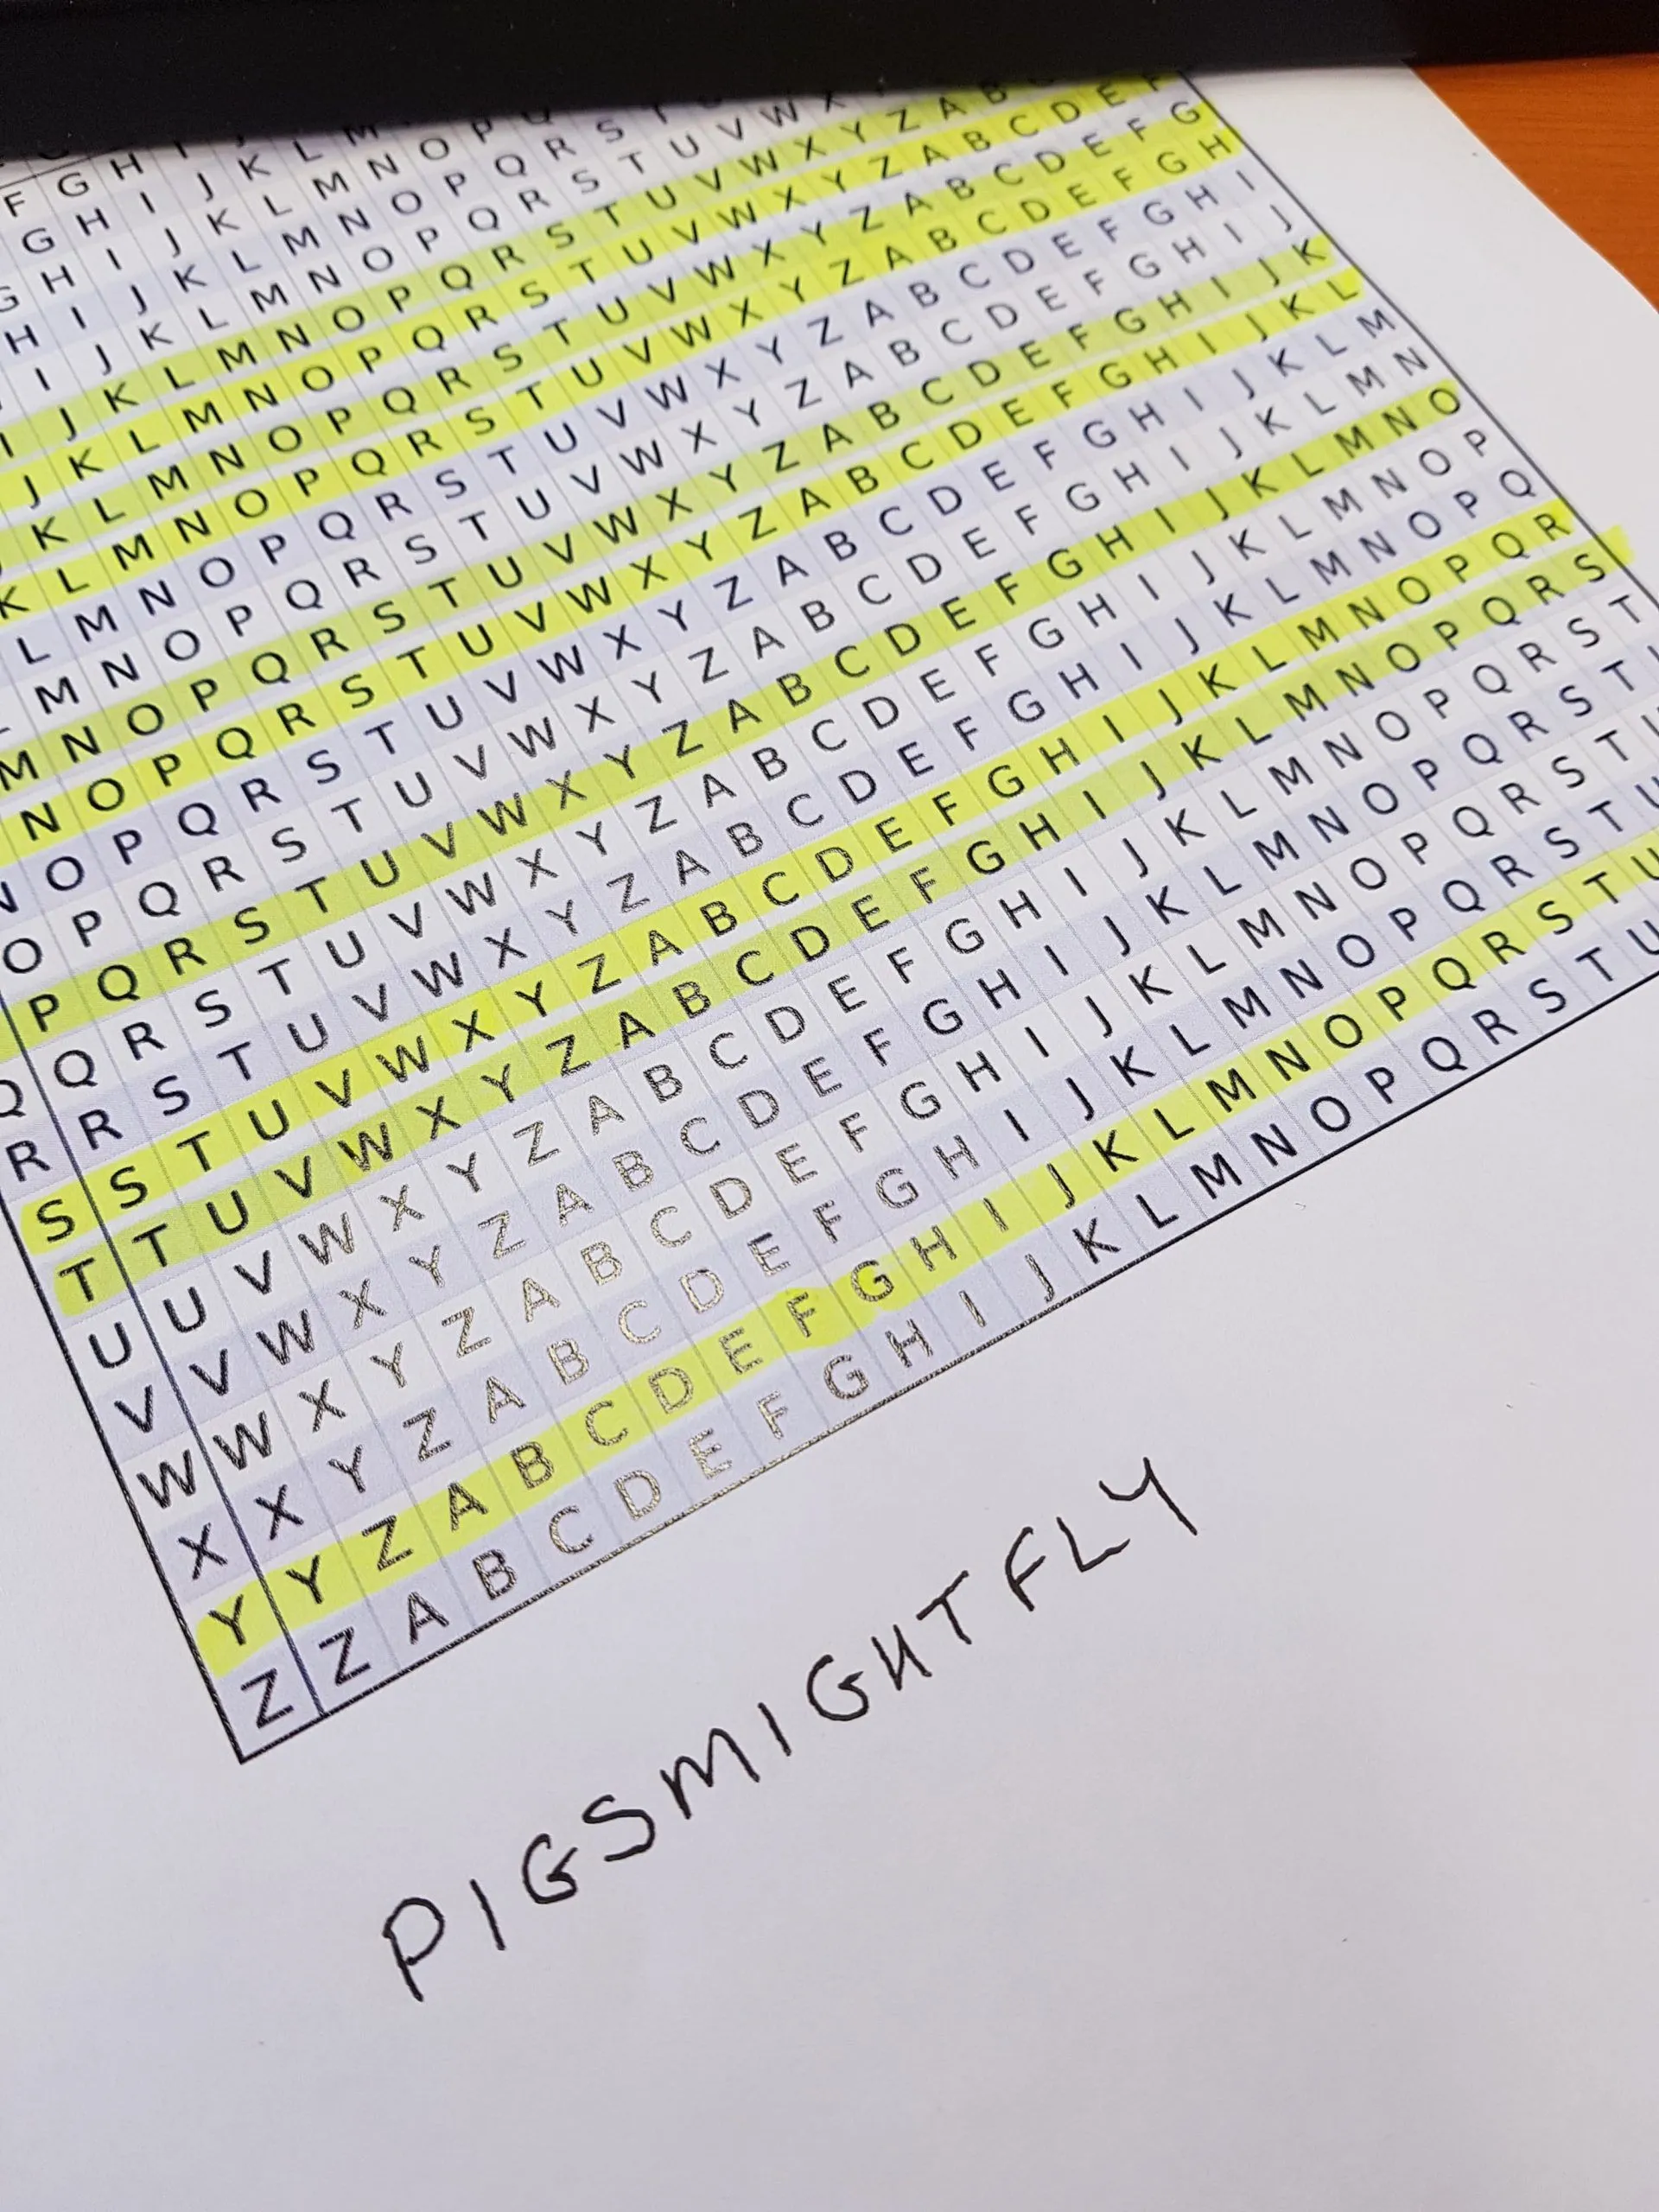 F G H I J
G H I J K L M
G H I J K L M N O P Q
H I J K L M N O P Q R S T
I J K L M N O P Q R S T U V W X
I J K L M N O P Q R S T U V W X Y Z A B
J K L M N O P Q R S T U V W X Y Z A B C D E F
K L M N O P Q R S T U V W X Y Z A B C D E F G
K L M N O P Q R S T U V W X Y Z A B C D E F G H
L M N O P Q R S T U V W X Y Z A B C D E F G H I
M N O P Q R S T U V W X Y Z A B C D E F G H I J
M N O P Q R S T U V W X Y Z A B C D E F G H I J K
N O P Q R S T U V W X Y Z A B C D E F G H I J K L
N O P Q R S T U V W X Y Z A B C D E F G H I J K L M
O P Q R S T U V W X Y Z A B C D E F G H I J K L M N
P Q R S T U V W X Y Z A B C D E F G H I J K L M N O
Q Q R S T U V W X Y Z A B C D E F G H I J K L M N O P
R R S T U V W X Y Z A B C D E F G H I J K L M N O P Q
S S T U V W X Y Z A B C D E F G H I J K L M N O P Q R
T T U V W X Y Z A B C D E F G H I J K L M N O P Q R S
U U V W X Y Z A B C D E F G H I J K L M N O P Q R S T
V V W X Y Z A B C D E F G H I J K L M N O P Q R S T
W W X Y Z A B C D E F G H I J K L M N O P Q R S T
X X Y Z A B C D E F G H I J K L M N O P Q R S T U
Y Y Z A B C D E F G H I J K L M N O P Q R S T U
Z Z A B C D E F G H I J K L M N O P Q R S T U
PIGSMIGHTFLY